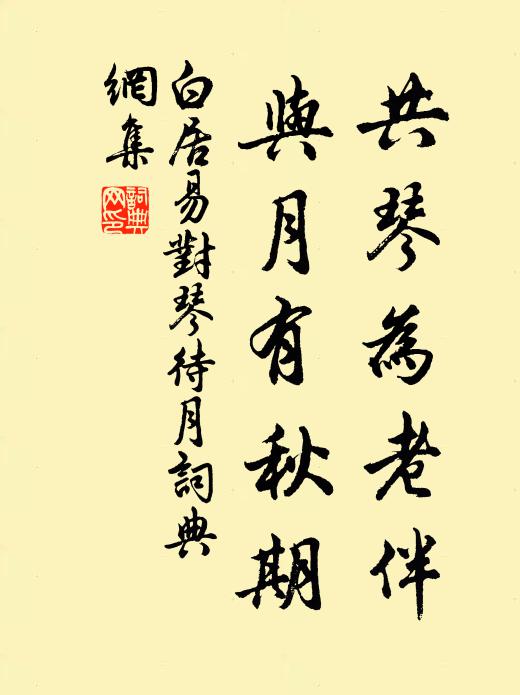 共琴為老伴
與月有秋期
白居易對琴待月詞典
網集
詞典
网印